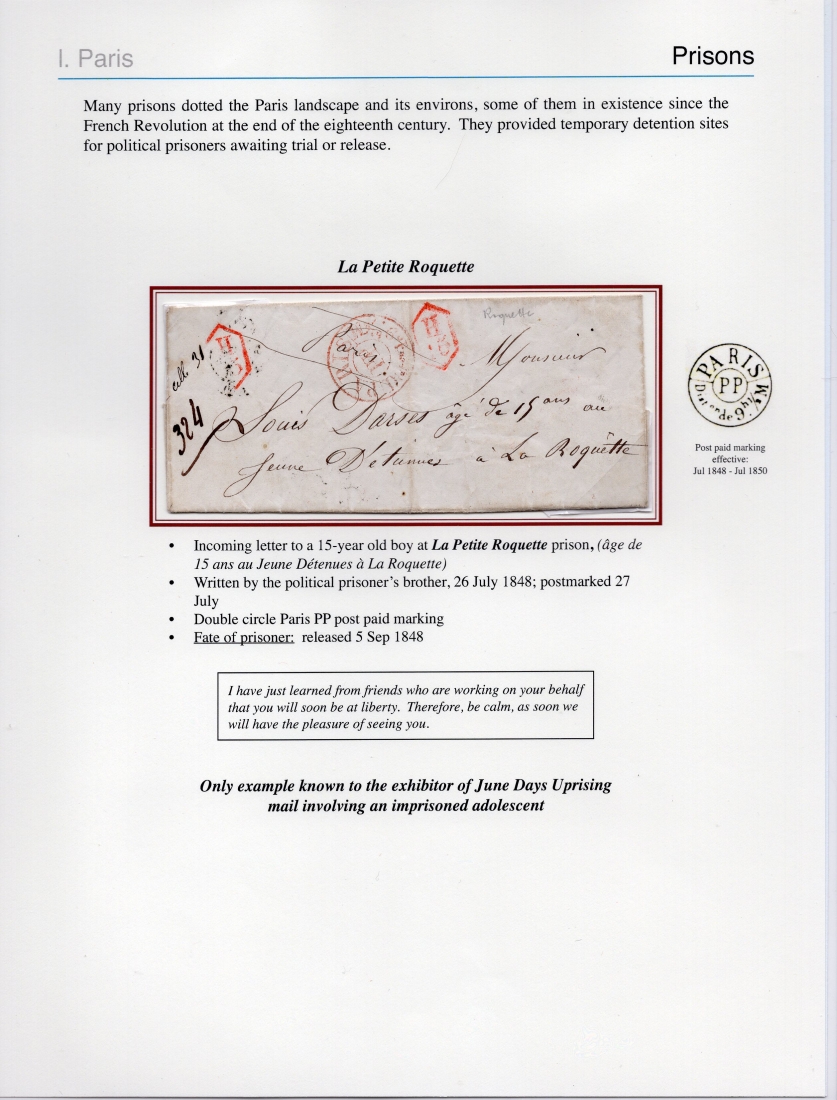 I. Paris
Prisons
Many prisons dotted the Paris landscape and its environs, some of them in existence since the
French Revolution at the end of the eighteenth century. They provided temporary detention sites
for political prisoners awaiting trial or release.
La Petite Roquette
Roquette
Paris
Monsieur
324
Louis Darses âgé de 15 ans au
Jeune Détennues à La Roquette
PARIS
PP
Post paid marking
effective:
Jul 1848 - Jul 1850
• Incoming letter to a 15-year old boy at La Petite Roquette prison, (âge de
15 ans au Jeune Détenues à La Roquette)
• Written by the political prisoner's brother, 26 July 1848; postmarked 27
July
• Double circle Paris PP post paid marking
• Fate of prisoner: released 5 Sep 1848
I have just learned from friends who are working on your behalf
that you will soon be at liberty. Therefore, be calm, as soon we
will have the pleasure of seeing you.
Only example known to the exhibitor of June Days Uprising
mail involving an imprisoned adolescent